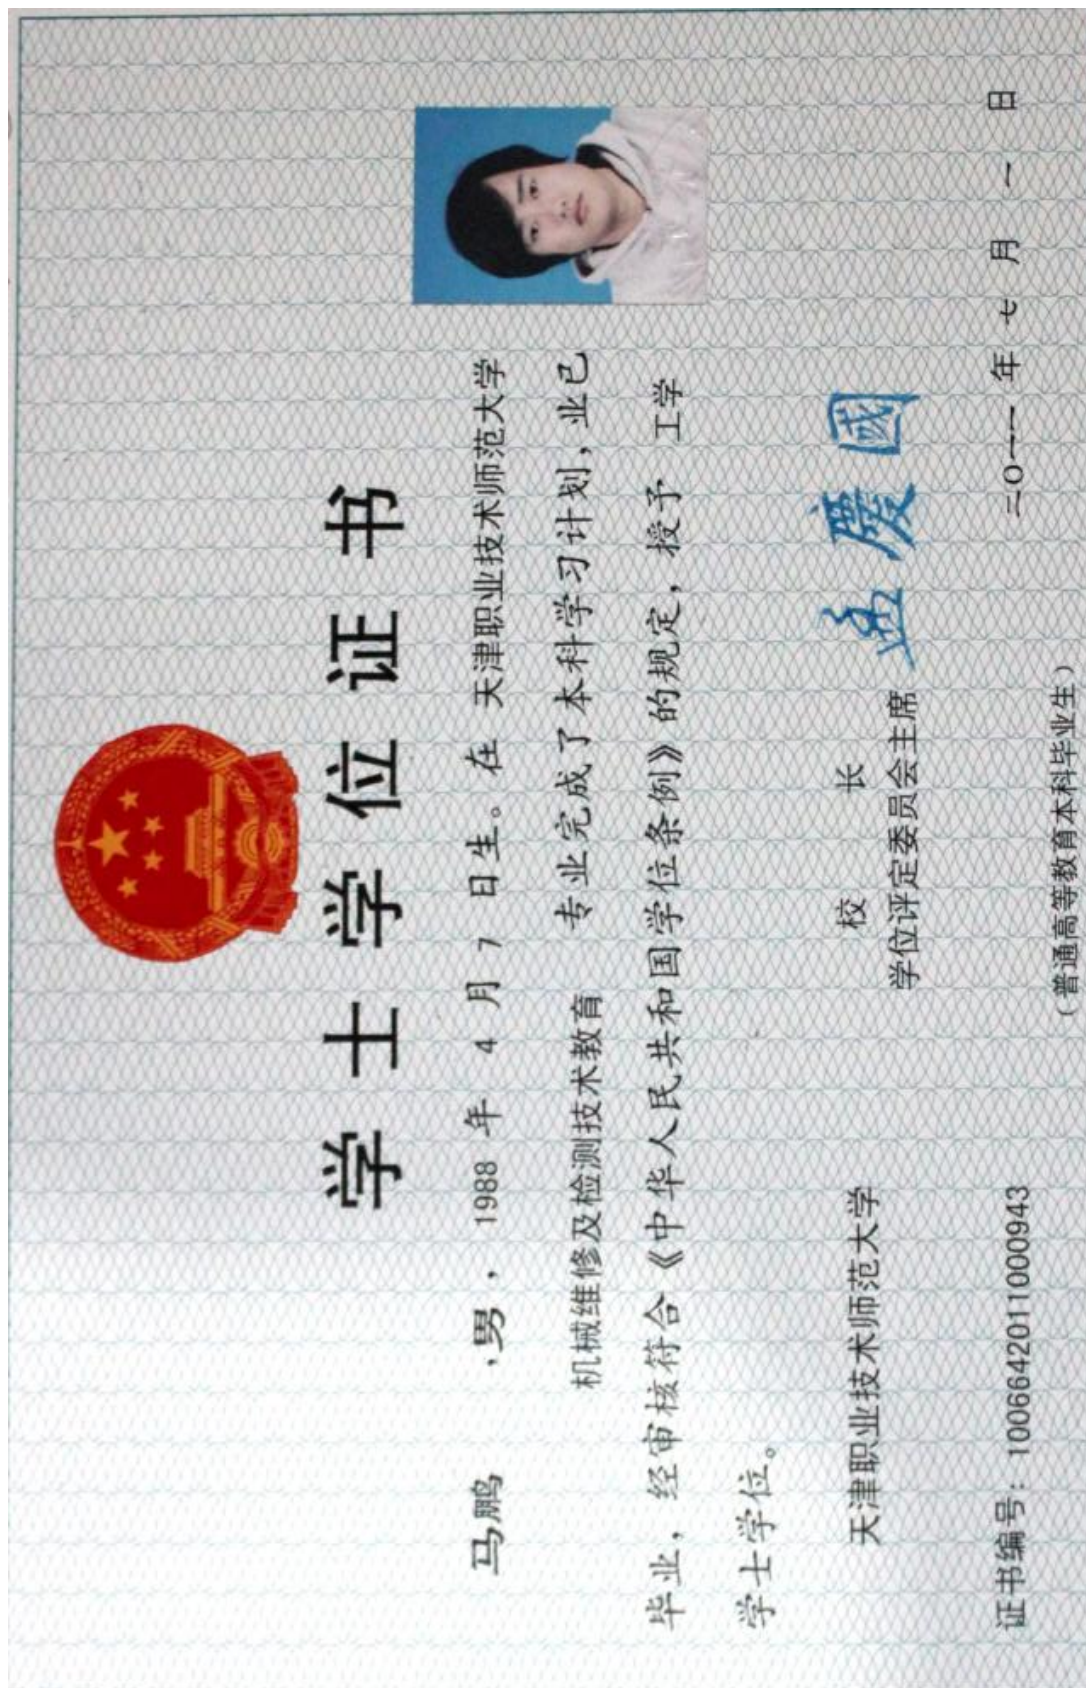 学士学位证书
马鹏 ,男, 1988 年 4 月 7 日生。在 天津职业技术师范大学
机械维修及检测技术教育 专业完成了本科学习计划,业已
毕业,经审核符合《中华人民共和国学位条例》的规定,授予 工学
学士学位。
天津职业技术师范大学
校 长
学位评定委员会主席
孟慶國
证书编号:1006642011000943
二〇一一年 七 月 一 日
(普通高等教育本科毕业生)